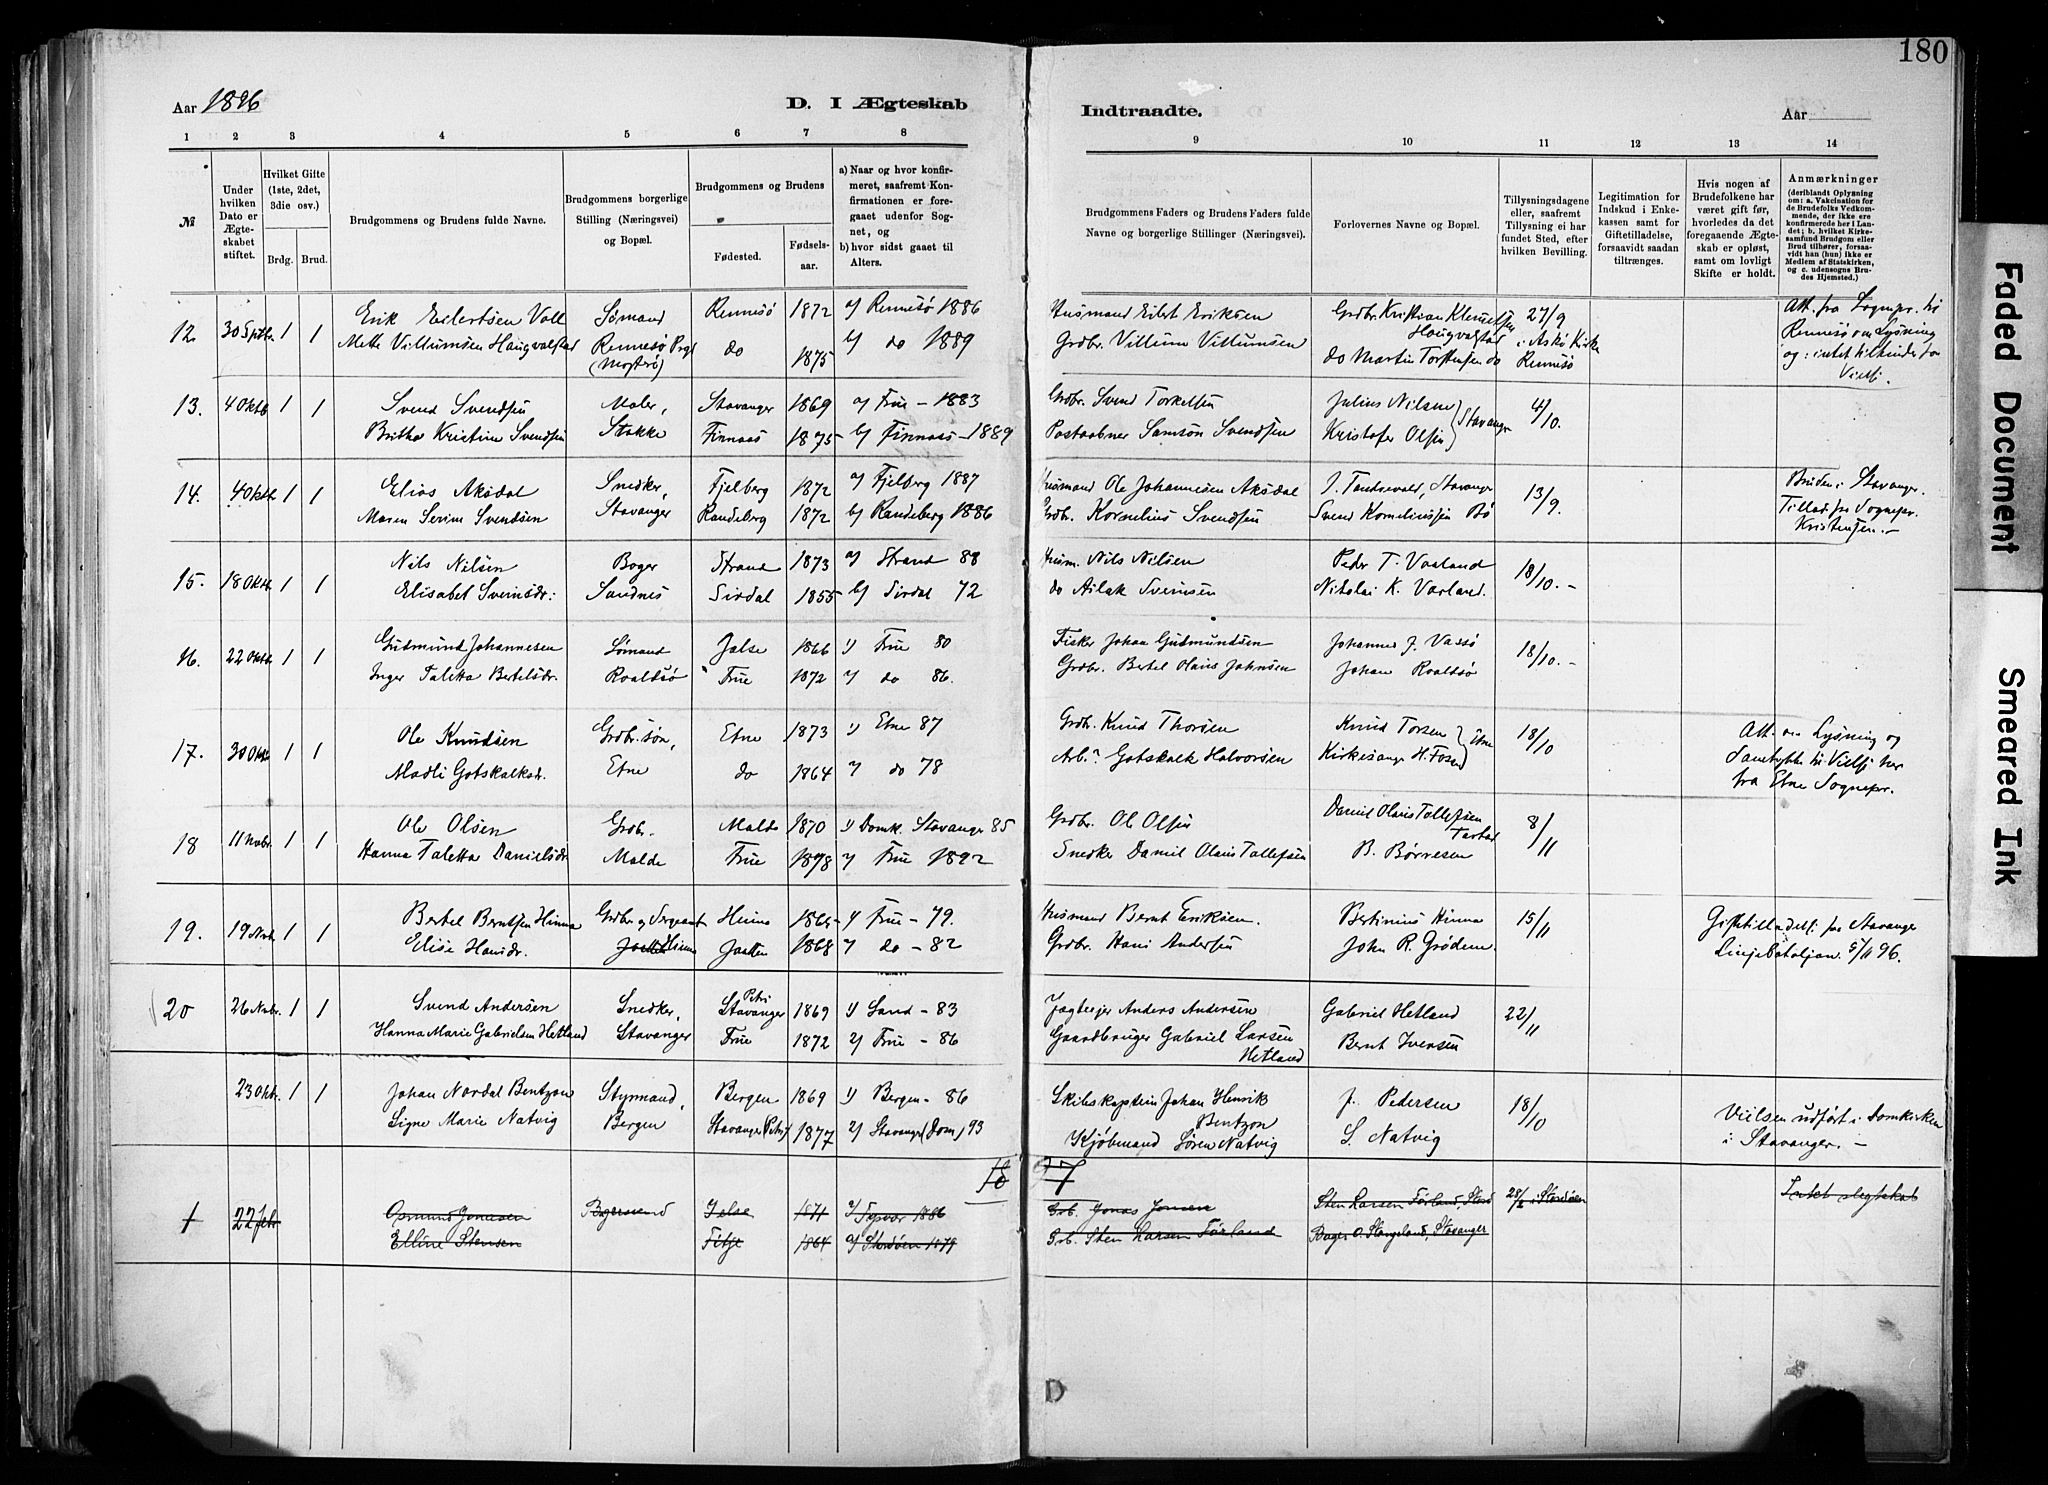 180
Aar 1896
D. I Ægteskab
Indtraadte.
Aar
1 2 3 4 5 6 7 8 9 10 11 12 13 14
№
Under hvilken Dato er Ægteskabet stiftet.
Hvilket Gifte (1ste, 2det, 3die osv.)
Brdg. Brud.
Brudgommens og Brudens fulde Navne.
Brudgommens borgerlige Stilling (Næringsvei) og Bopæl.
Brudgommens og Brudens
Fødested. Fødselsaar.
a) Naar og hvor konfirmeret, saafremt Konfirmationen er foregaaet udenfor Sognet, og
b) hvor sidst gaaet til Alters.
Brudgommens Faders og Brudens Faders fulde Navne og borgerlige Stillinger (Næringsvei).
Forlovernes Navne og Bopæl.
Tillysningsdagene eller, saafremt Tillysning ei har fundet Sted, efter hvilken Bevilling.
Legitimation for Indskud i Enkekassen samt for Giftetilladelse, forsaavidt saadan tiltrænges.
Hvis nogen af Brudefolkene har været gift før, hvorledes da det foregaaende Ægteskab er opløst, samt om lovligt Skifte er holdt.
Anmærkninger
(deriblandt Oplysning om: a. Vakcination for de Brudefolks Vedkommende, der ikke ere konfirmerede her i Landet; b. hvilket Kirkesamfund Brudgom eller Brud tilhører, forsaavidt han (hun) ikke er Medlem af Statskirken, og c. udensogns Brudes Hjemsted.)
12. 30 Sptb. 1 1 Erik Eilertsen Voll Sømand Rennesø 1872 a) Rennesø 1886 Husmand Eilert Eriksen Grdbr. Kristian Klemetsen Haugvalstad 27/9 Att. fra Sognepr. til
Mette Villumsen Haugvalstad Rennesø Prgj (Mosterø) do 1875 b) do 1889 Grdbr. Villum Villumsen do Martin Torstensen do i Askø Kirke Rennesø Rennesø om Lysning og: intet til hinder for Vielse.
13. 4 Oktb 1 1 Svend Svendsen Maler, Stavanger 1869 a) Frue - 1883 Grdbr. Svend Torkelsen Julius Nilsen 4/10.
Britha Kristine Svendsen Stokke Finnaas 1875 b) Finnaas - 1889 Postaabner Samson Svendsen Kristofer Olsen Stavanger
14. 4 Oktb 1 1 Elias Aksdal Snedker, Fjelberg 1872 a) Fjelberg 1887 Husmand Ole Johannesen Aksdal Stavanger 13/9. Bruden i Stavanger.
Maren Serine Svendsen Stavanger Randeberg 1872 b) Randeberg 1886 Grdb. Kornelius Svendsen Svend Korneliussen Bø Tillad. fra Sognepr. Kristensen.-
15. 18 Oktb. 1 1 Nils Nilsen Bøger Strand 1873 a) Strand 88 Husm. Nils Nilsen Peder T. Vaaland 18/10.-
Elisabet Sveinsdr: Sandnes Sirdal 1855 b) Sirdal 72 do Ailak Sveinsen Nikolai K. Varland.
16. 22 Oktb. 1 1 Gudmund Johannesen Sømand Jelse 1866 1) Frue 80 Fisker Johan Gudmundsen Johannes J. Vassø 18/10.-
Inger Taletta Bertelsdr. Roaldsø Frue 1872 2) do 86. Grdbr. Bertel Olaus Johnsen Johan Roaldsø
17. 30 Oktb 1 1 Ole Knudsen Grdbr.søn, Etne 1873 1) Etne 87 Grdb. Knud Thorsen Knud Torsen Etne 18/10 Att. om Lysning og
Madli Gotskalksdr. Etne do 1864 2) do 78 Arb. Gotskalk Halvorsen Kirkesanger H. Fosen Samtykke til Vielse her fra Etne Sognepr.
18 11 Nvbr. 1 1 Ole Olsen Grdb. Malde 1870 1) Domk. Stavanger 85 Grdb. Ole Olsen Daniel Olaus Tollefsen Tastad 8/11
Hanna Taletta Danielsdr. Malde Frue 1878 2) Frue 1892 Snedker Daniel Olaus Tollefsen B. Børresen
19. 19 Nvb. 1 1 Bertel Berntsen Hinna Grdbr. og Sergeant Hinna 1865 1) Frue - 79. Husmand Bernt Eriksen. Bertinius Hinna 15/11 Giftetilladelse fra Stavanger
Elise Hansdr. Jaatten Hinna Jaatten 1868 2) do - 82 Grdbr. Hans Andersen John R. Grødem. Linjebataljon 5/11 96.
20 26 Nvbr. 1 1 Svend Andersen Snedker, Petri Stavanger 1869 1) Sand - 83 Jægteejer Anders Andersen Gabriel Hetland 22/11
Hanna Marie Gabrielsen Hetland Stavanger Frue 1872 2) Frue - 86 Gaardbruger Gabriel Larsen Hetland Bernt Iversen
23 Okt. 1 1 Johan Nordal Bentzon Styrmand, Bergen 1869 1) Bergen - 86 Skibskaptein Johan Henrik Bentzon J. Pedersen 18/10 Vielsen udført i Domkirken
Signe Marie Natvig Bergen Stavanger (Petri) 1877 2) Stavanger (Dom) 93 Kjøbmand Søren Natvig S. Natvig i Stavanger. -
1 22 feb Osmund Jonesen Bøgersvend Jelse 1871 1) Tysvær 1886 Grb. Jonas Jonsen Sten Larsen Førland, Stord 28/2 i Stordøen Intet ægteskab
Elline Stensen Fitje 1864 2) Stordøen 1879 Grb. Sten Larsen Førland Bager O. Stangeland, Stavanger
D
Faded Document
Smeared Ink